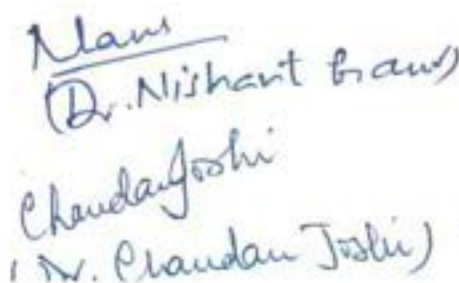 (Dr. Nishant
Chandan Joshi
(Dr. Chandan Joshi)